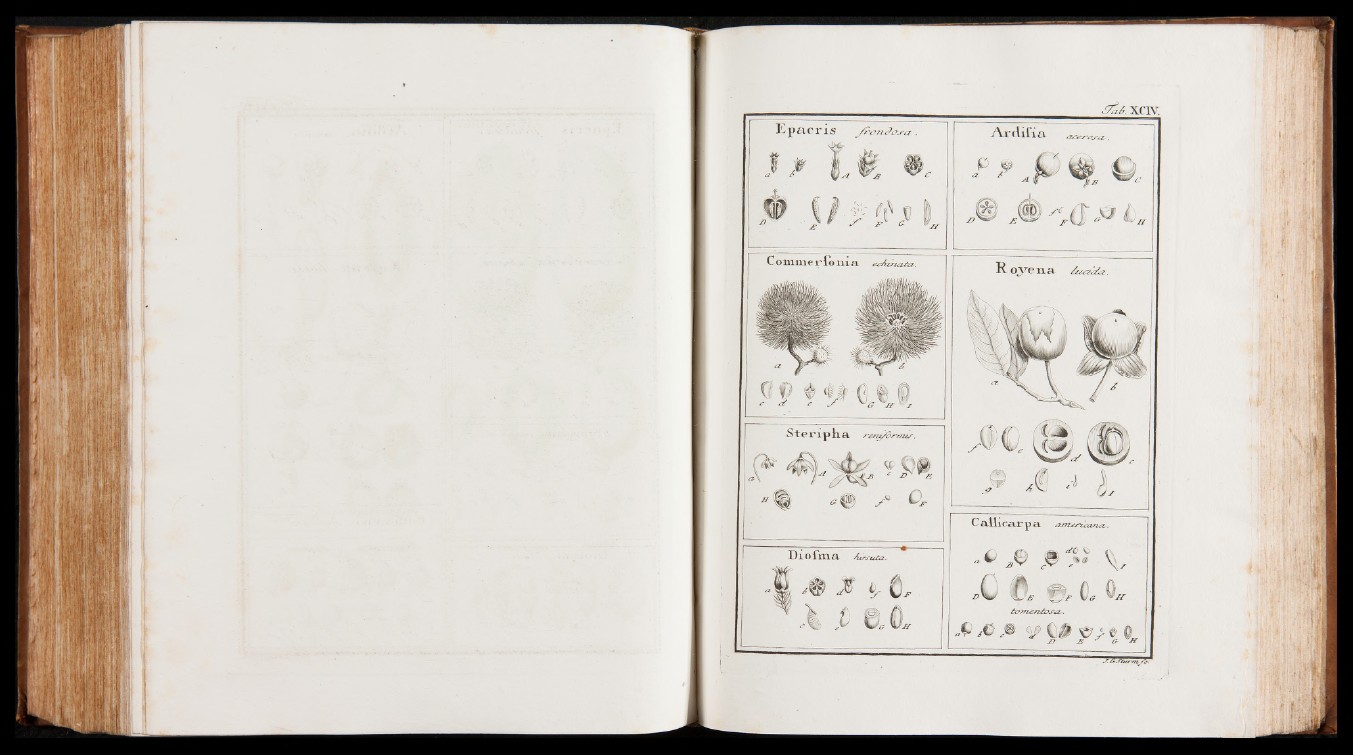 Tab. XCIV.
Epacris frondosa.
a b A B C
D E f F G H
Ardiſia acerosa.
a b A B C
D E f F G H
Commerſonia echinata.
a b
c d e f G H I
Royena lucida.
a b
f c d e
g h i I
Steripha reniformis.
a A B c D E
H G f F
Callicarpa americana.
a B C d e I
D E F G H
tomentosa.
a b c d D E f G H
Dioſma hirsuta.
a b d f F
c e G H
J. G. Sturm sc.